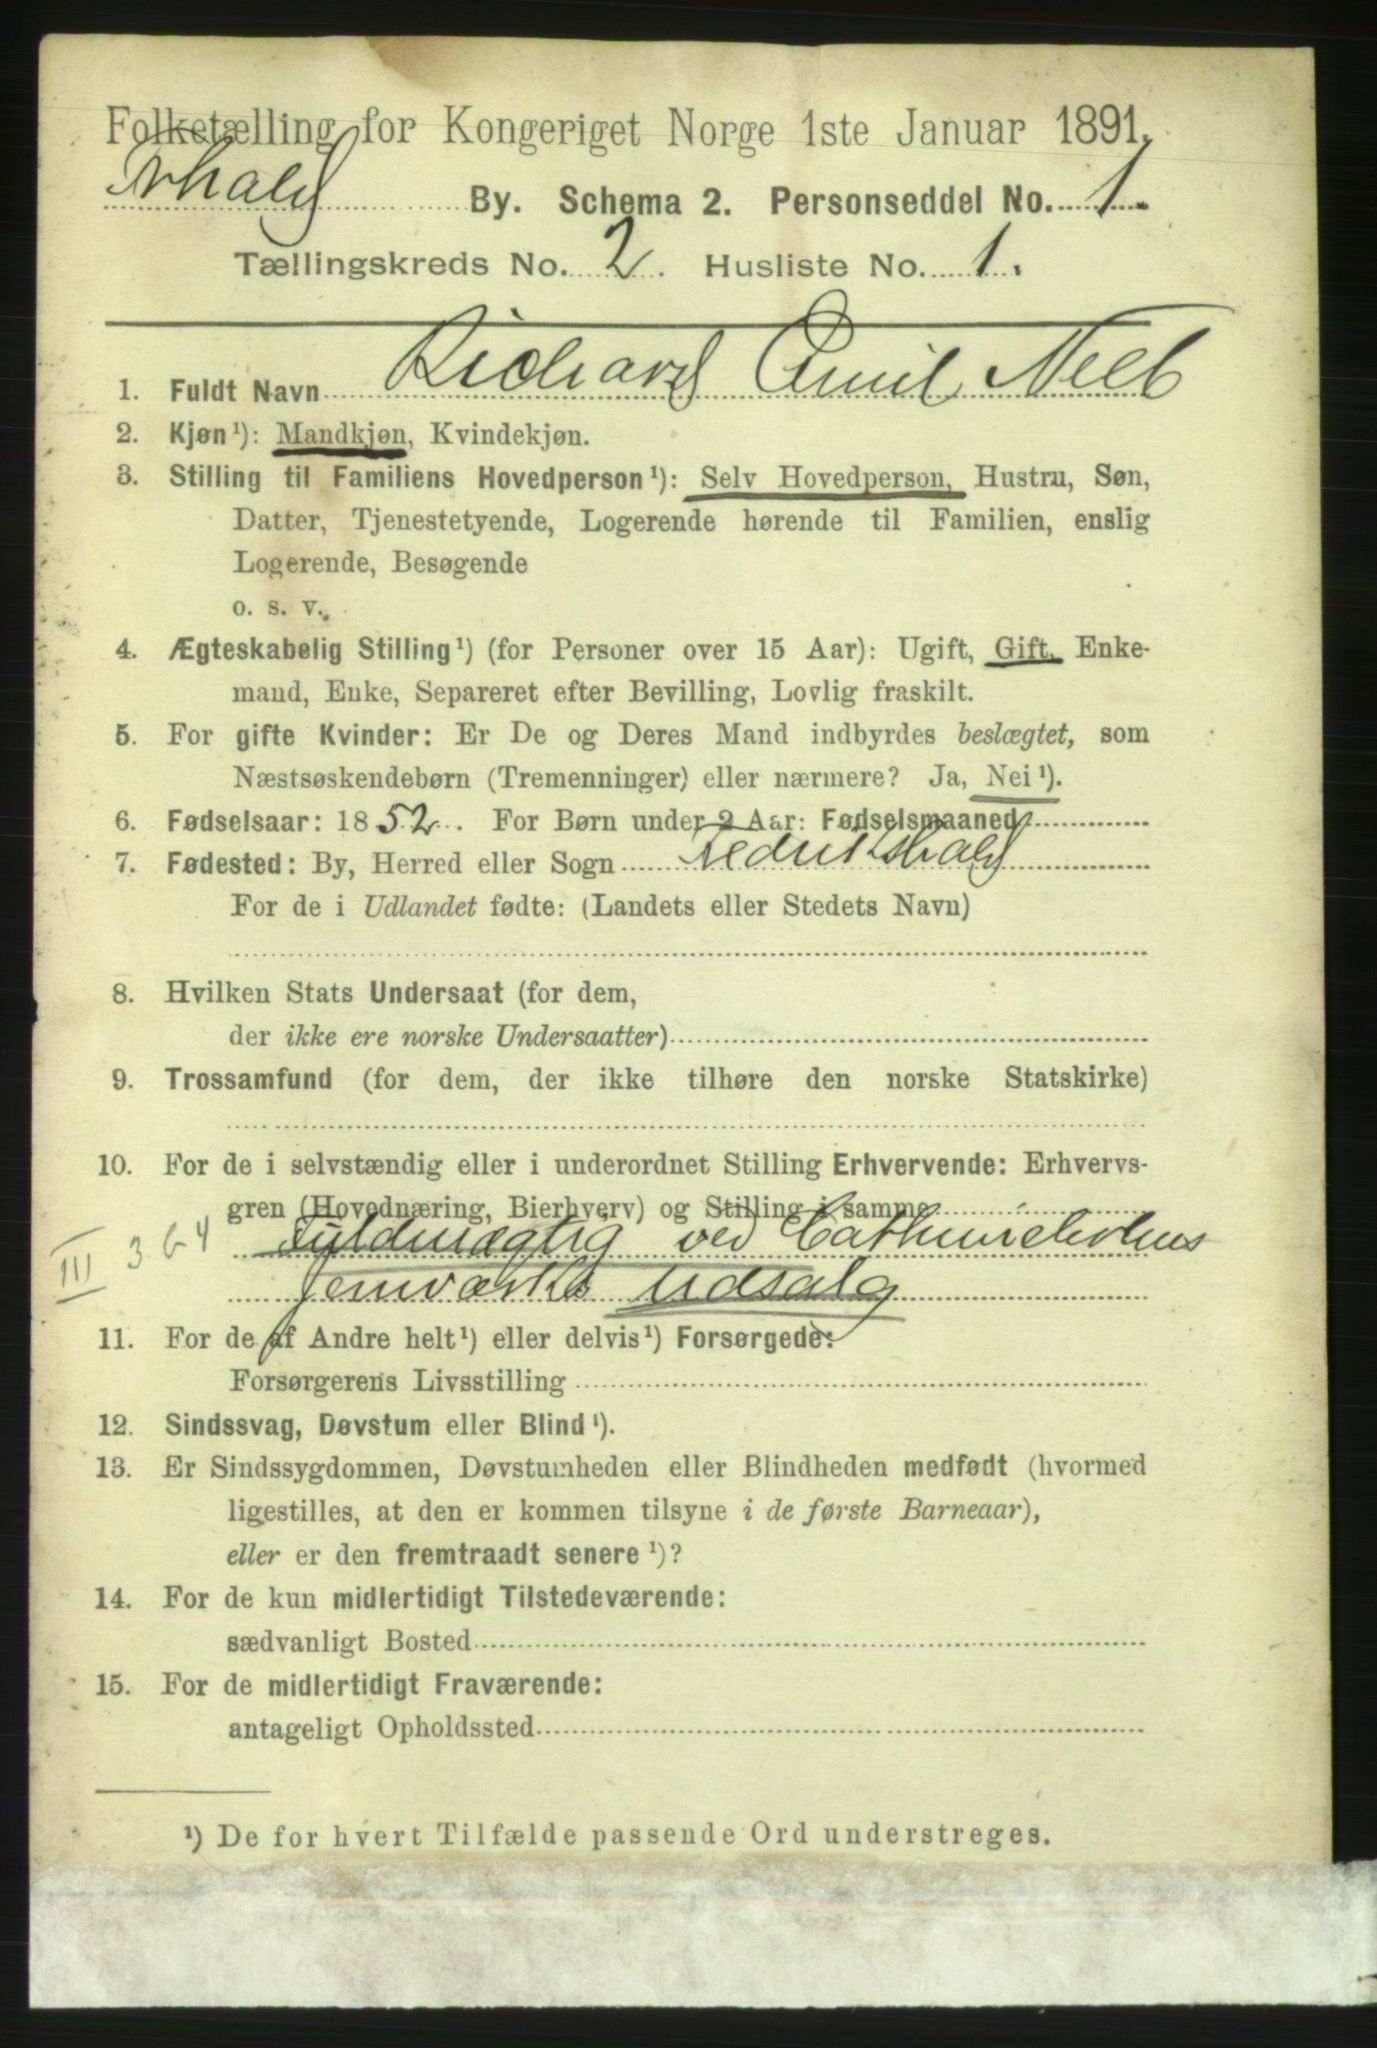 Folketælling for Kongeriget Norge 1ste Januar 1891.
Frhald By. Schema 2. Personseddel No. 1.
Tællingskreds No. 2. Husliste No. 1.
1. Fuldt Navn Richard Emil Neeb
2. Kjøn¹): Mandkjøn, Kvindekjøn.
3. Stilling til Familiens Hovedperson¹): Selv Hovedperson, Hustru, Søn,
Datter, Tjenestetyende, Logerende hørende til Familien, enslig
Logerende, Besøgende
o. s. v.
4. Ægteskabelig Stilling¹) (for Personer over 15 Aar): Ugift, Gift, Enke-
mand, Enke, Separeret efter Bevilling, Lovlig fraskilt.
5. For gifte Kvinder: Er De og Deres Mand indbyrdes beslægtet, som
Næstsøskendebørn (Tremenninger) eller nærmere? Ja, Nei¹).
6. Fødselsaar: 1852. For Børn under 2 Aar: Fødselsmaaned
7. Fødested: By, Herred eller Sogn Fredrikshald
For de i Udlandet fødte: (Landets eller Stedets Navn)
8. Hvilken Stats Undersaat (for dem,
der ikke ere norske Undersaatter)
9. Trossamfund (for dem, der ikke tilhøre den norske Statskirke)
10. For de i selvstændig eller i underordnet Stilling Erhvervende: Erhvervs-
gren (Hovednæring, Bierhverv) og Stilling i samme
III 364 Fuldmægtig ved Cathrineholms
Jernværks Udsalg
11. For de af Andre helt¹) eller delvis¹) Forsørgede:
Forsørgerens Livsstilling
12. Sindssvag, Døvstum eller Blind¹).
13. Er Sindssygdommen, Døvstumheden eller Blindheden medfødt (hvormed
ligestilles, at den er kommen tilsyne i de første Barneaar),
eller er den fremtraadt senere¹)?
14. For de kun midlertidigt Tilstedeværende:
sædvanligt Bosted
15. For de midlertidigt Fraværende:
antageligt Opholdssted
¹) De for hvert Tilfælde passende Ord understreges.